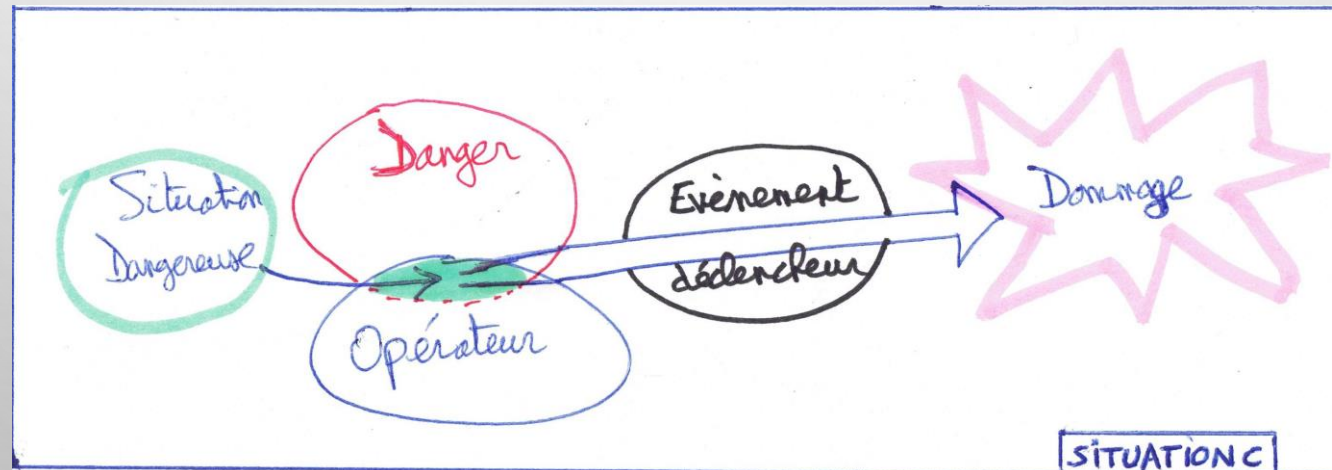 Situation
Dangereuse
Danger
Opérateur
Evènement
déclencheur
Dommage
SITUATION C